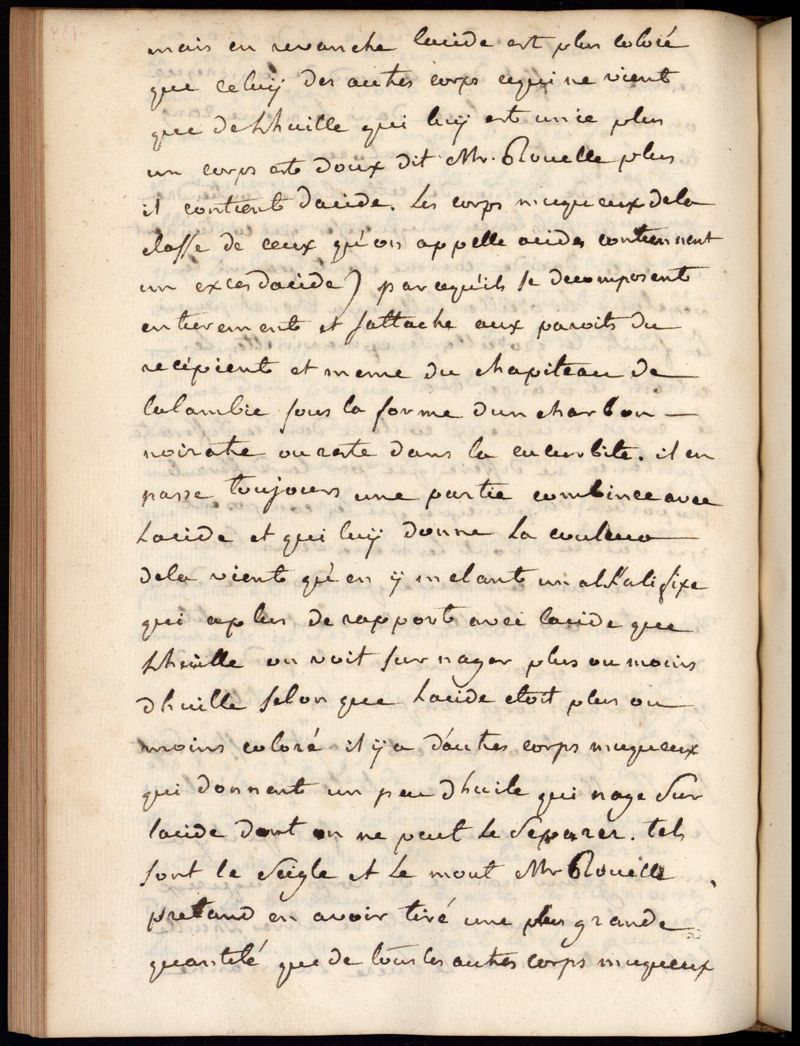 mais en revanche lacide est plus coloré
que celuÿ des autres corps cequi ne vient
que de Lhuille qui luÿ est unie plus
un corps est doux dit Mr. Rouelle plus
il contient dacide. Les corps muqueux dela
classe de ceux qu'on appelle acides contiennent
un exces dacide) parcequ'ils se decomposent
entierement et sattache aux parois du
recipient et meme du chapiteau de
lalambic sous la forme dun charbon —
noiratre ou reste dans la cucurbite. il en
passe toujours une partie combinée avec
Lacide et qui luÿ donne La couleur
dela vient qu'en ÿ melant un alkali fixe
qui a plus de rapport avec lacide que
Lhuille on voit surnager plus ou moins
dhuille selon que Lacide etoit plus ou
moins coloré il ÿ a dautres corps muqueux
qui donnent un peu dhuile qui nage Sur
lacide dont on ne peut Le Separer. tels
sont le Seigle et Le mout Mr Rouelle
pretand en avoir tiré une plus grande
quantité que de tous les autres corps muqueux